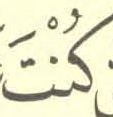 كُنْتَ